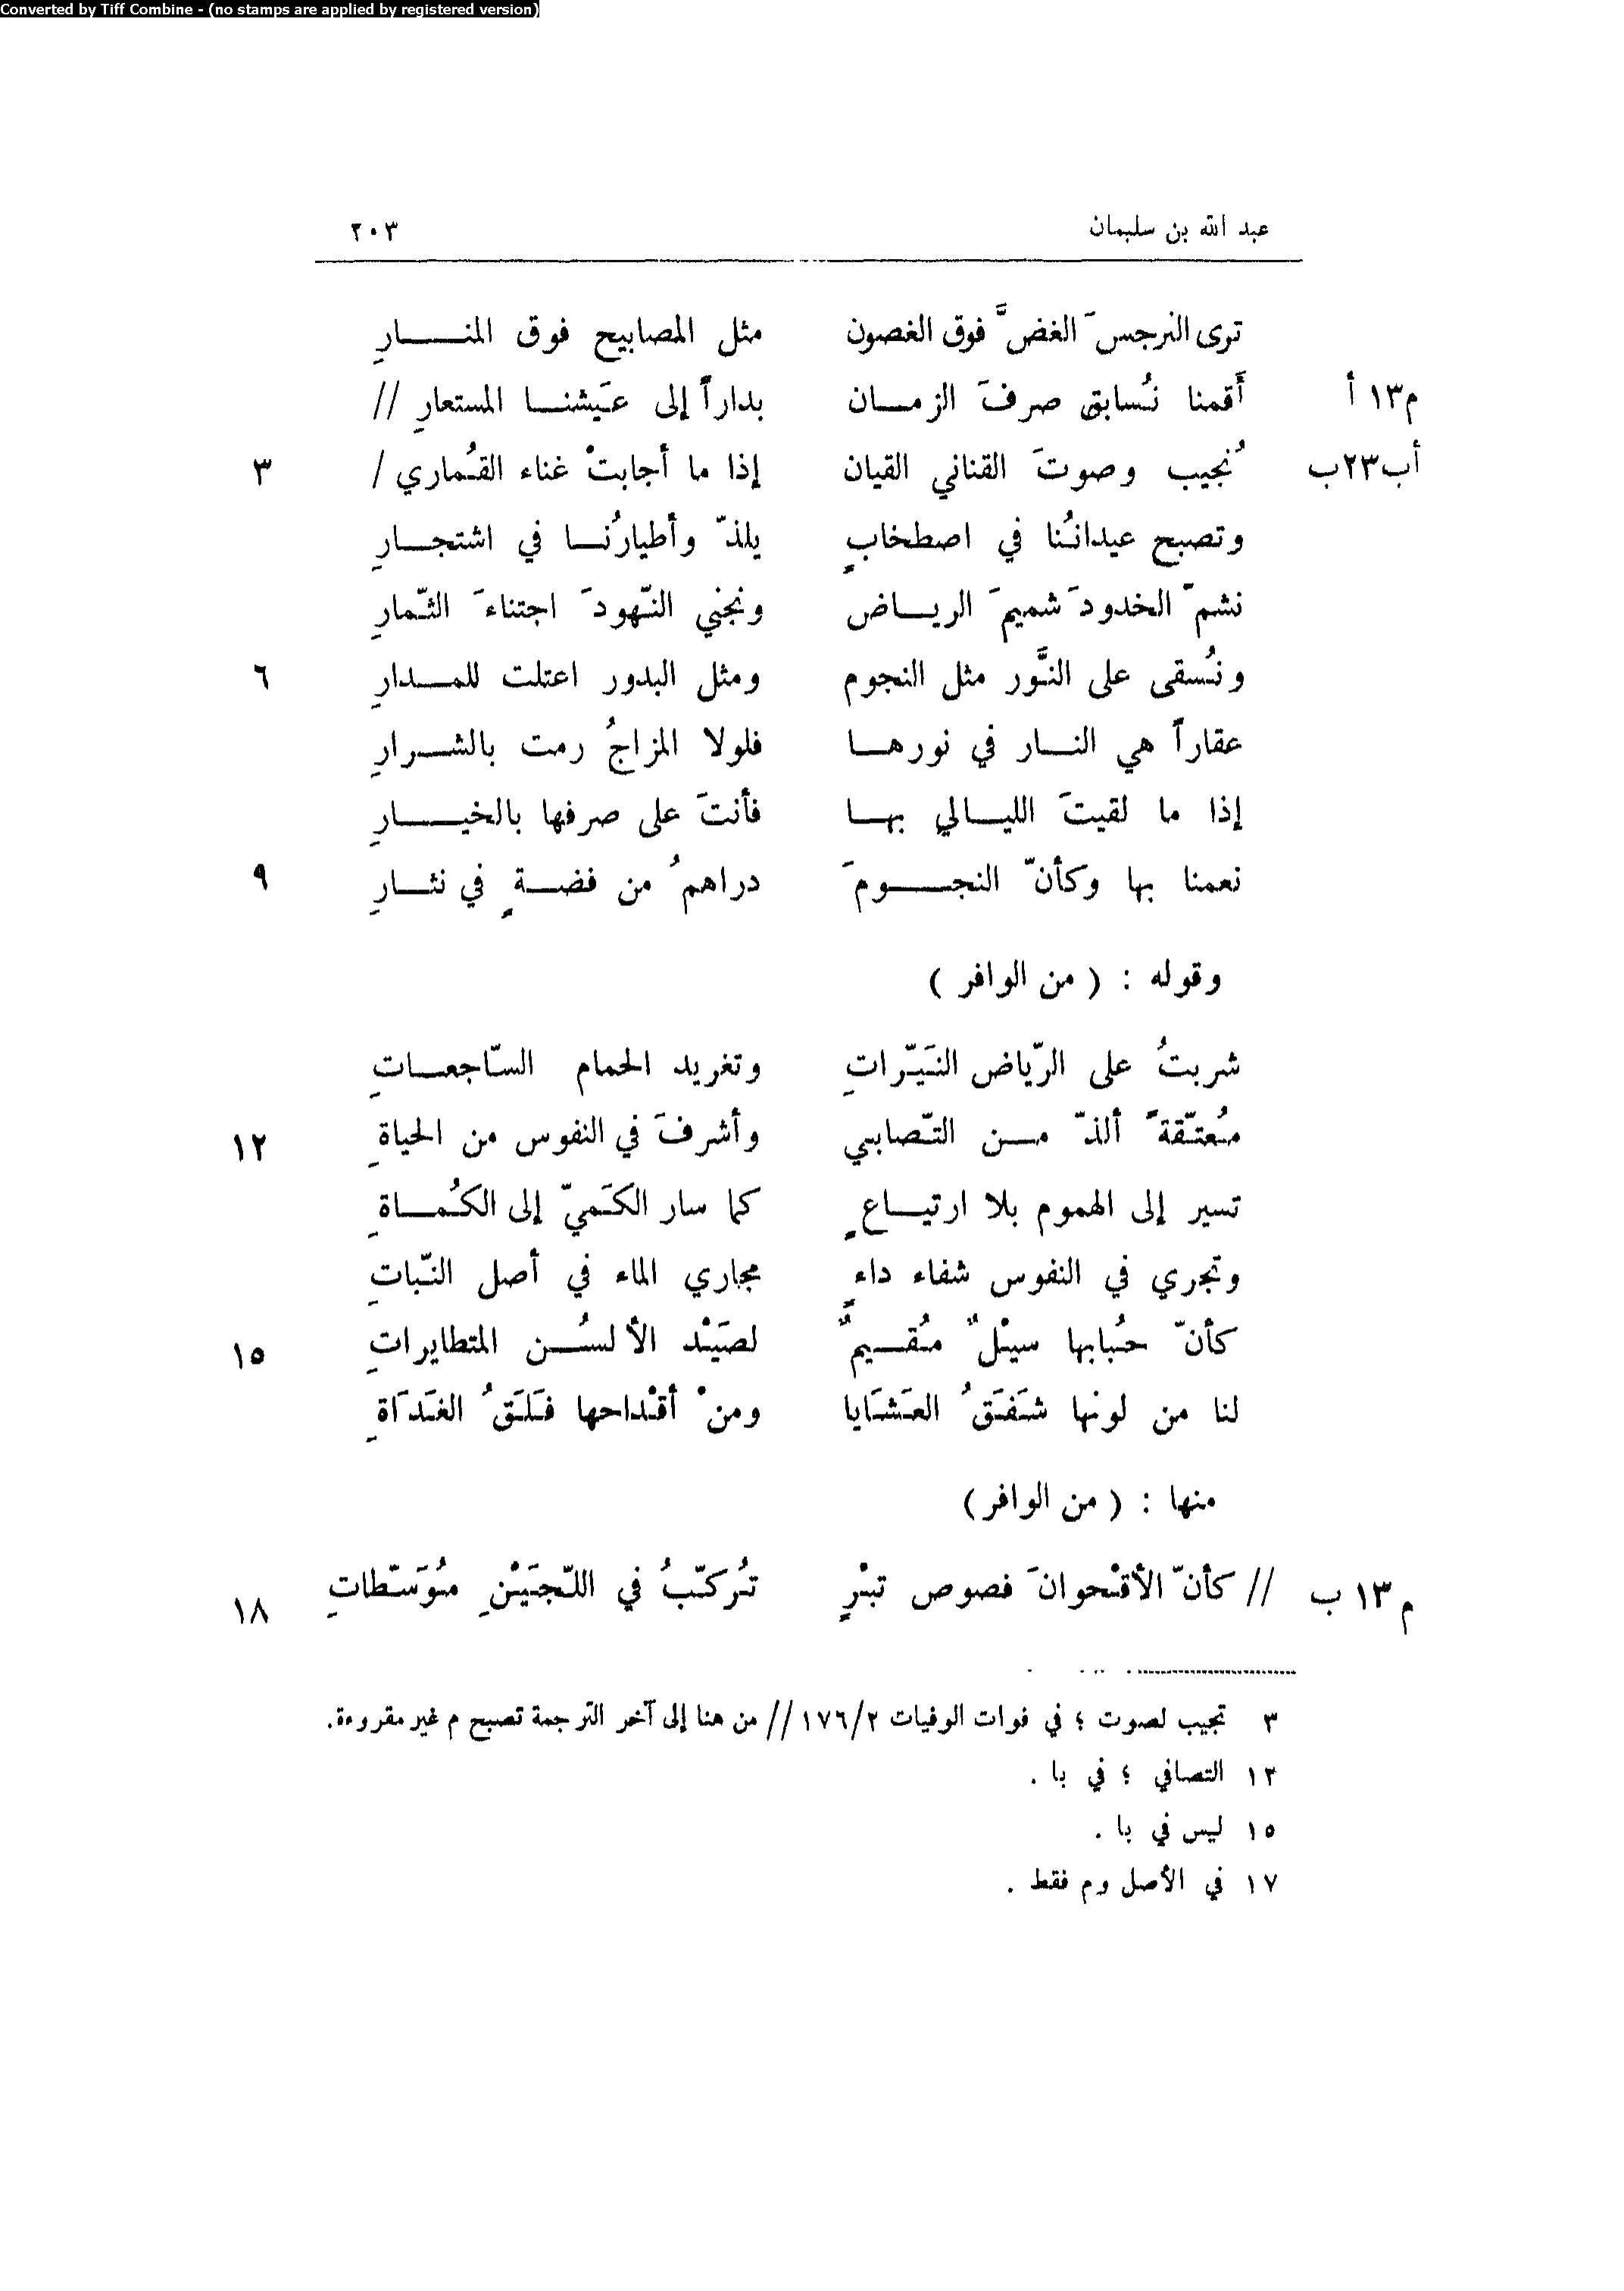 Converted by Tiff Combine - (no stamps are applied by registered version)
عبد الله بن سليمان ٢٠٣
ترى النرجسَ الغضَّ فوق الغصون مثل المصابيح فوق المنارِ
م١٣ أ أَقمنا نُسابق صرفَ الزمان بداراً إلى عَيشنا المستعارِ //
أب٢٣ب نُجيب وصوتَ القناني القيان إذا ما أجابتْ غناء القُماري / ٣
وتصبح عيدانُنا في اصطخابٍ يلذّ وأطيارُنا في اشتجارِ
نشمّ الخدودَ شميمَ الرياض ونجني النّهودَ اجتناءَ الثّمارِ
ونُسقى على النَّور مثل النجوم ومثل البدور اعتلت للمدارِ ٦
عقاراً هي النار في نورها فلولا المزاجُ رمت بالشرارِ
إذا ما لقيتَ الليالي بها فأنتَ على صرفها بالخيارِ
نعمنا بها وكأنّ النجومَ دراهمُ من فضةٍ في نثارِ ٩
وقوله : ( من الوافر )
شربتُ على الرّياض النَيّراتِ وتغريد الحمام السّاجعاتِ
مُعتّقةً ألذّ من التّصابي وأشرفَ في النفوس من الحياةِ ١٢
تسير إلى الهموم بلا ارتياعٍ كما سار الكَميّ إلى الكُماةِ
وتجري في النفوس شفاء داءٍ مجاري الماء في أصل النّباتِ
كأنّ حُبابها سيْلٌ مُقيمٌ لصَيْد الألسُن المتطايراتِ ١٥
لنا من لونها شَفَقُ العَشَايا ومنْ أقْداحها فَلَقُ الغَدَاةِ
منها : ( من الوافر )
م ١٣ ب // كأنّ الأقْحوانَ فصوص تبْرٍ تُركّبُ في اللّجَيْنِ مُوَسّطاتِ ١٨
٣ تجيب لصوت ؛ في فوات الوفيات ١٧٦/٢ // من هنا إلى آخر الترجمة تصبح م غير مقروءة.
١٢ التصافي ؛ في با .
١٥ ليس في با .
١٧ في الأصل وم فقط .